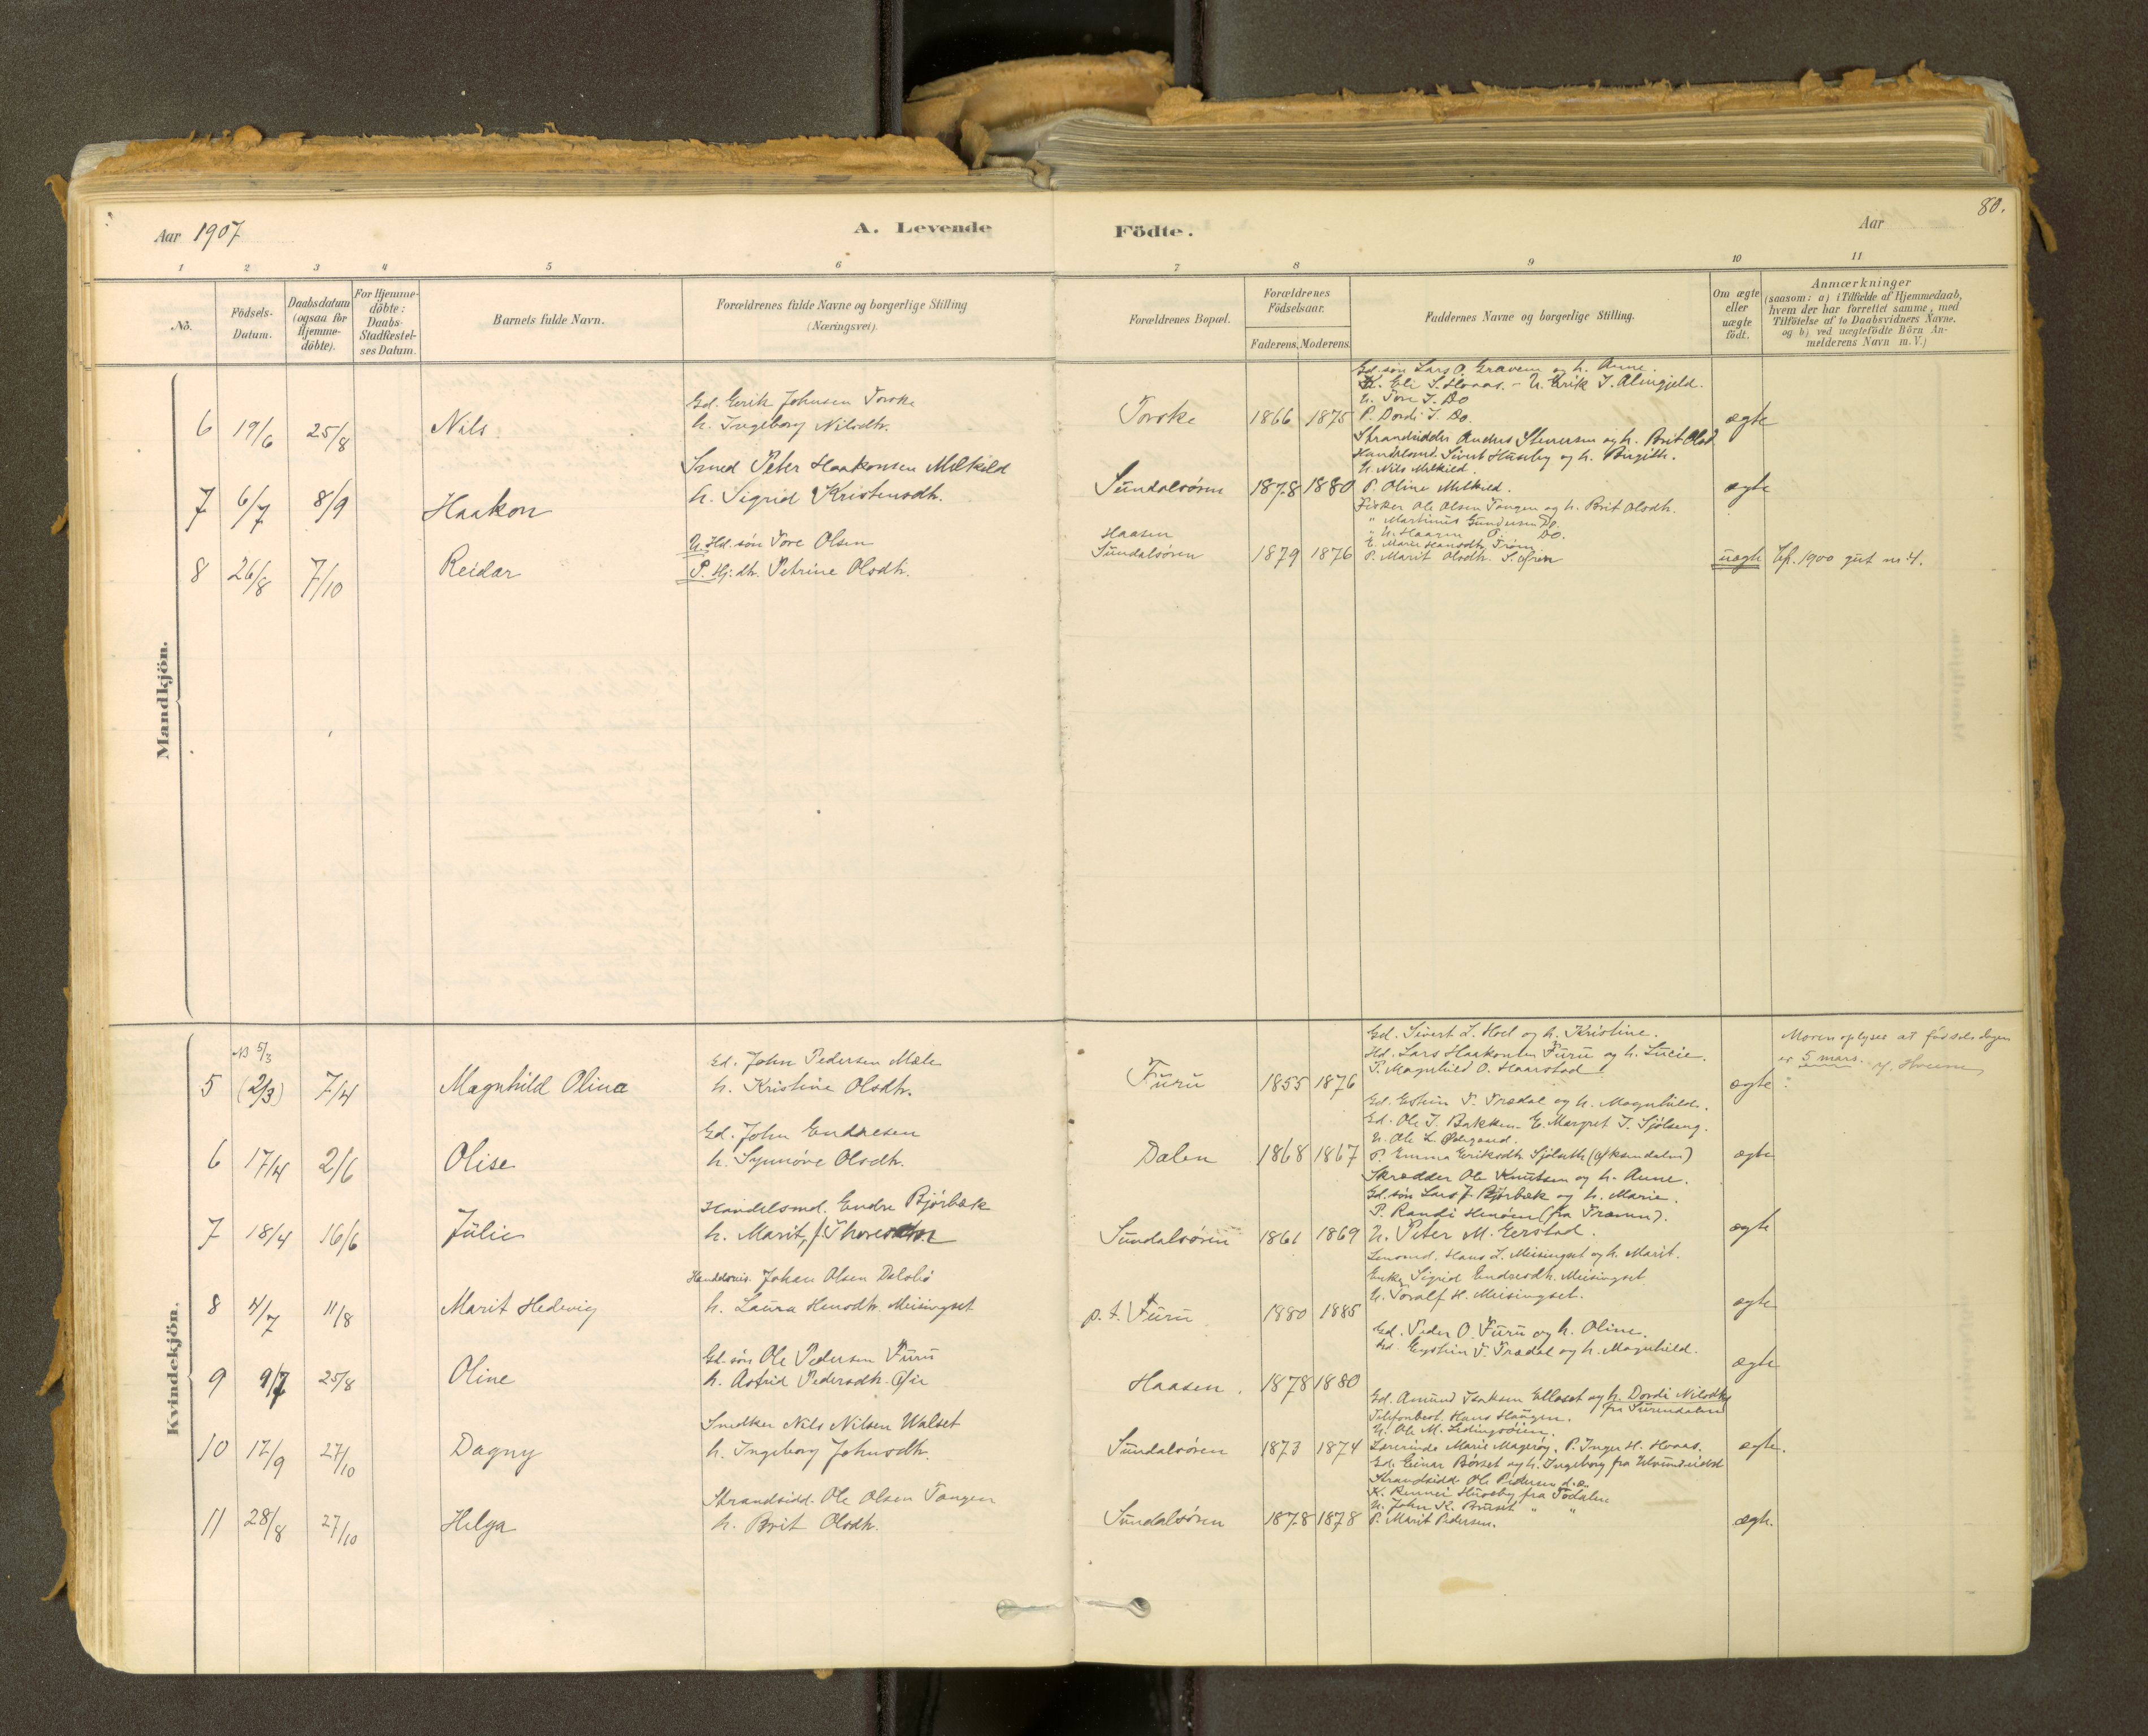 80.
Aar 1907
A. Levende
Födte.
Aar
1 2 3 4 5 6 7 8 9 10 11
Nö.
Födsels-
Datum.
Daabsdatum
(ogsaa for
Hjemme-
döbte).
For Hjemme-
döbte:
Daabs-
Stadfæstel-
ses Datum.
Barnets fulde Navn.
Forældrenes fulde Navne og borgerlige Stilling
(Næringsvei).
Forældrenes Bopæl.
Forældrenes
Födselsaar.
Faderens.
Moderens.
Faddernes Navne og borgerlige Stilling.
Om ægte
eller
uægte
födt.
Anmærkninger
(saasom: a) i Tilfælde af Hjemmedaab,
hvem der har forrettet samme, med
Tilföielse af to Daabsvidners Navne.
og b) ved uægtefödte Börn An-
melderens Navn m. V.)
Mandkjön.
6 19/6 25/8 Nils
Gd. Erik Johnsen Torske
h. Ingeborg Nilsdtr.
Torske 1866 1875
Gd. søn Lars O. Gravem og h. Anne.
K. Eli S. Hoaas. - U. Erik J. Almgjeld.
U. Tore J. Do
P. Dordi J. Do.
ægte
7 6/7 8/9 Haakon
Smed Peter Haakonsen Melkild
h. Sigrid Kristensdtr.
Sundalsören 1878 1880
Strandsidder Anders Steneersen og h. Brit Olsd.
Handelsmd. Sivert Husby og h. Birgitte.
U. Nils Melkild.
P. Oline Melkild.
ægte
8 26/8 7/10 Reidar
U. Hd. søn Tore Olsen
P. Hj: dtr. Petrine Olsdtr.
Haasen
Sundalsören 1879 1876
Fisker Ole Olsen Tangen og h. Brit Olsdtr.
" Martinus Gundersen Do.
" U. Haagen O. Do.
E. Marie Hansdtr. Trøen
P. Marit Olsdtr. S. Ören
uægte
Cfr. 1900 gut no 4.
Kvindekjön.
5 NB 5/3
(2/3) 7/4 Magnhild Olina
Gd. John Pedersen Mæle
h. Kristine Olsdtr.
Furu 1855 1876
Gd. Sivert L. Hoel og h. Kristine.
Hd. Lars Haakonsen Furu og h. Lucie.
P. Magnhild O. Haarstad
ægte
Moren oplyser at fødselsdagen
er 5 mars.
6 17/4 2/6 Olise
Gd. John Endresen
h. Synnöve Olsdtr.
Dalen 1868 1867
Gd. Estein T. Trædal og h. Magnhild.
Gd. Ole J. Bakken - E. Margret J. Sjölseng.
U. Ole L.
P. Emma Eriksdtr. Sjölseth (Øksendalen)
ægte
7 18/4 16/6 Julie
Handelsmd. Endre Bjørbæk
h. Marit, f.
Sundalsören 1861 1869
Skrædder Ole Knutsen og h. Anne.
Gd. søn Lars J. Bjørbæk og h. Marie.
P. Randi Henöen (fra Træmn).
U. Peter M. Eerstad.
ægte
8 4/7 11/8 Marit Hedevig
Johan Olsen Dalsbö
h. Laura Hansdtr. Meisingset
p. t. Furu 1880 1885
Hans L. Meisingset og h. Marit.
Enke Sigrid Endresdtr. Meisingset.
U. Toralf H. Meisingset.
ægte
9 9/7 25/8 Oline
Gd. søn Ole Pedersen Furu
h. Astrid Pedersdtr.
Haasen. 1878 1880
Gd. Peder O. Furu og h. Oline.
Gd. Eystein T. Trædal og h. Magnhild.
ægte
10 17/9 27/10 Dagny
Snedker Nils Nilsen Walset
h. Ingeborg Johnsdtr.
Sundalsören 1873 1874
Gd. Amund Isaksen Ellaset og h. Dordi Nilsdtr.
fra Surendalen
Telefonbest. Hans Haugen.
U. Ole M. Ledingsöien.
Lærerinde Marie Magerøy. P. Inger H. Hoaas.
ægte.
11 28/8 27/10 Helga
Strandsidd. Ole Olsen Tangen
h. Brit Olsdtr.
Sundalsören 1878 1878
Gd. Einar Børset og h. Ingeborg fra
Strandsidd. Ole Pedersen d. æ.
K. Huseby fra Todalen
U. John K. Bruset " "
P. Marit Pedersen.
ægte.